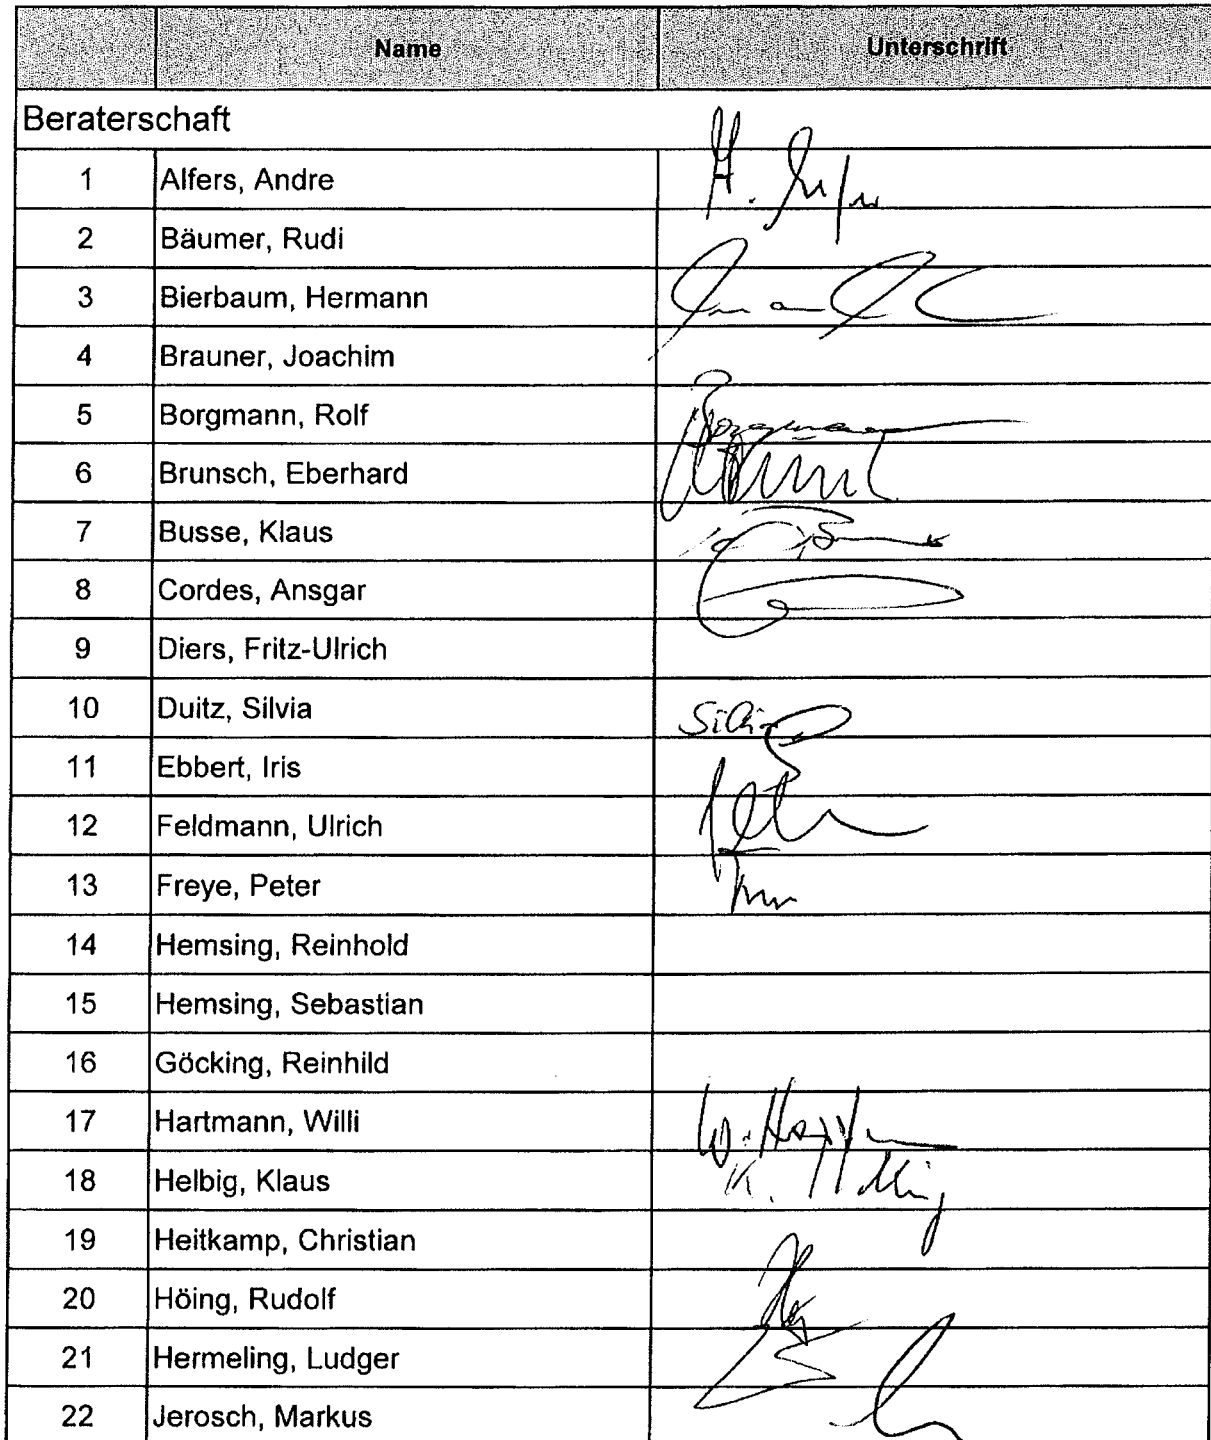 Name Unterschrift
Beraterschaft
1 Alfers, Andre
2 Bäumer, Rudi
3 Bierbaum, Hermann
4 Brauner, Joachim
5 Borgmann, Rolf
6 Brunsch, Eberhard
7 Busse, Klaus
8 Cordes, Ansgar
9 Diers, Fritz-Ulrich
10 Duitz, Silvia
11 Ebbert, Iris
12 Feldmann, Ulrich
13 Freye, Peter
14 Hemsing, Reinhold
15 Hemsing, Sebastian
16 Göcking, Reinhild
17 Hartmann, Willi
18 Helbig, Klaus
19 Heitkamp, Christian
20 Höing, Rudolf
21 Hermeling, Ludger
22 Jerosch, Markus